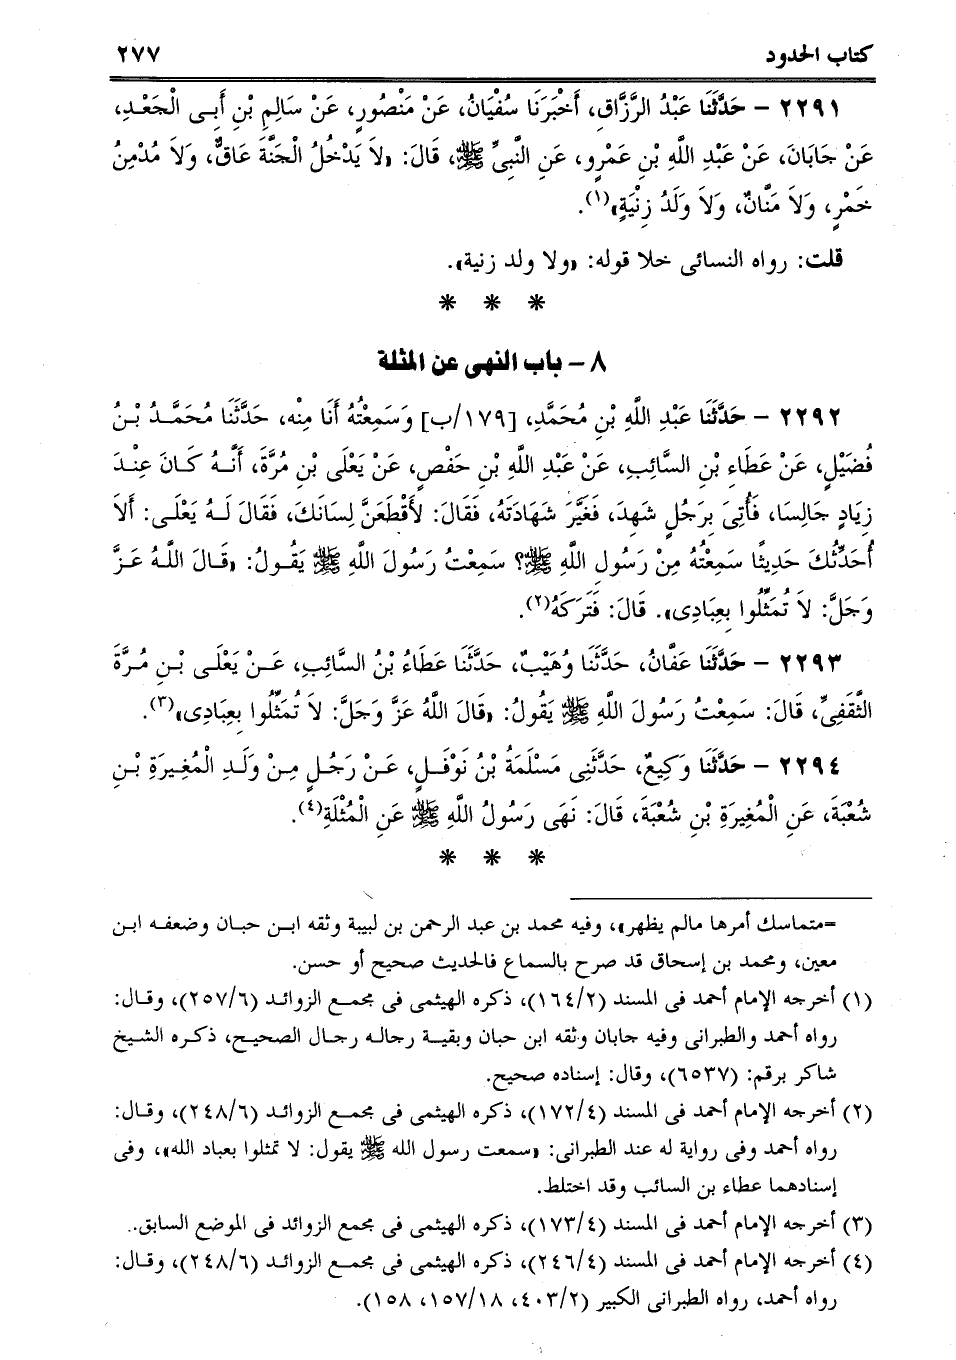 كتاب الحدود ٢٧٧
٢٢٩١ – حَدَّثَنَا عَبْدُ الرَّزَّاقِ، أَخْبَرَنَا سُفْيَانُ، عَنْ مَنْصُورٍ، عَنْ سَالِمِ بْنِ أَبِى الْجَعْدِ،
عَنْ جَابَانَ، عَنْ عَبْدِ اللَّهِ بْنِ عَمْرٍو، عَنِ النَّبِىِّ ﷺ، قَالَ: «لاَ يَدْخُلُ الْجَنَّةَ عَاقٌّ، وَلاَ مُدْمِنُ
خَمْرٍ، وَلاَ مَنَّانٌ، وَلاَ وَلَدُ زِنْيَةٍ»(١).
قلت: رواه النسائى خلا قوله: «ولا ولد زنية».
* * *
٨ – باب النهى عن المثلة
٢٢٩٢ – حَدَّثَنَا عَبْدِ اللَّهِ بْنِ مُحَمَّدِ، [١٧٩/ب] وَسَمِعْتُهُ أَنَا مِنْه، حَدَّثَنَا مُحَمَّدُ بْنُ
فُضَيْلٍ، عَنْ عَطَاءِ بْنِ السَّائِبِ، عَنْ عَبْدِ اللَّهِ بْنِ حَفْصٍ، عَنْ يَعْلَى بْنِ مُرَّةَ، أَنَّهُ كَانَ عِنْدَ
زِيَادٍ جَالِسًا، فَأُتِىَ بِرَجُلٍ شَهِدَ، فَغَيَّرَ شَهَادَتَهُ، فَقَالَ: لأَقْطَعَنَّ لِسَانَكَ، فَقَالَ لَهُ يَعْلَى: أَلاَ
أُحَدِّثُكَ حَدِيثًا سَمِعْتُهُ مِنْ رَسُولِ اللَّهِ ﷺ؟ سَمِعْتُ رَسُولَ اللَّهِ ﷺ يَقُولُ: «قَالَ اللَّهُ عَزَّ
وَجَلَّ: لاَ تُمَثِّلُوا بِعِبَادِى». قَالَ: فَتَرَكَهُ(٢).
٢٢٩٣ – حَدَّثَنَا عَفَّانُ، حَدَّثَنَا وُهَيْبٌ، حَدَّثَنَا عَطَاءُ بْنُ السَّائِبِ، عَنْ يَعْلَى بْنِ مُرَّةَ
الثَّقَفِىِّ، قَالَ: سَمِعْتُ رَسُولَ اللَّهِ ﷺ يَقُولُ: «قَالَ اللَّهُ عَزَّ وَجَلَّ: لاَ تُمَثِّلُوا بِعِبَادِى»(٣).
٢٢٩٤ – حَدَّثَنَا وَكِيعٌ، حَدَّثَنِى مَسْلَمَةُ بْنُ نَوْفَلٍ، عَنْ رَجُلٍ مِنْ وَلَدِ الْمُغِيرَةِ بْنِ
شُعْبَةَ، عَنِ الْمُغِيرَةِ بْنِ شُعْبَةَ، قَالَ: نَهَى رَسُولُ اللَّهِ ﷺ عَنِ الْمُثْلَةِ(٤).
* * *
=متماسك أمرها مالم يظهر»، وفيه محمد بن عبد الرحمن بن لبيبة وثقه ابن حبان وضعفه ابن
معين، ومحمد بن إسحاق قد صرح بالسماع فالحديث صحيح أو حسن.
(١) أخرجه الإمام أحمد فى المسند (١٦٤/٢)، ذكره الهيثمى فى مجمع الزوائد (٢٥٧/٦)، وقال:
رواه أحمد والطبرانى وفيه جابان وثقه ابن حبان وبقية رجاله رجال الصحيح، ذكره الشيخ
شاكر برقم: (٦٥٣٧)، وقال: إسناده صحيح.
(٢) أخرجه الإمام أحمد فى المسند (١٧٢/٤)، ذكره الهيثمى فى مجمع الزوائد (٢٤٨/٦)، وقال:
رواه أحمد وفى رواية له عند الطبرانى: «سمعت رسول الله ﷺ يقول: لا تمثلوا بعباد الله»، وفى
إسنادهما عطاء بن السائب وقد اختلط.
(٣) أخرجه الإمام أحمد فى المسند (١٧٣/٤)، ذكره الهيثمى فى مجمع الزوائد فى الموضع السابق..
(٤) أخرجه الإمام أحمد فى المسند (٢٤٦/٤)، ذكره الهيثمى فى مجمع الزوائد (٢٤٨/٦)، وقال:
رواه أحمد، رواه الطبرانى الكبير (٤٠٣/٢، ١٥٧/١٨، ١٥٨).